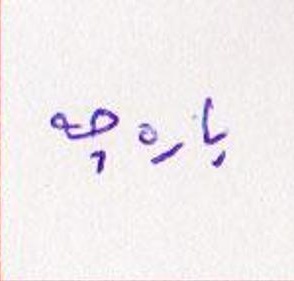 پاره چه